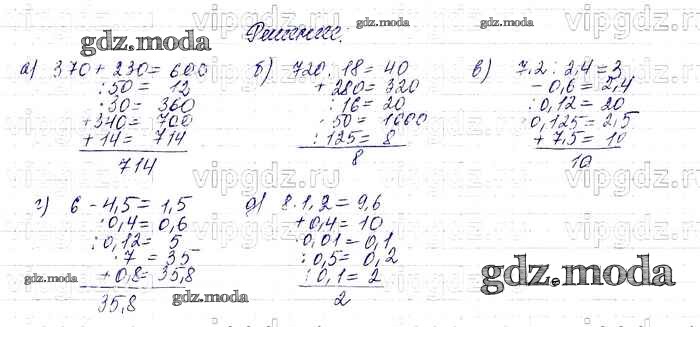 Решение.
а) 370 + 230 = 600
: 50 = 12
· 30 = 360
+ 340 = 700
+ 14 = 714
714
б) 720 : 18 = 40
+ 280 = 320
: 16 = 20
· 50 = 1000
: 125 = 8
8
в) 7,2 : 2,4 = 3
- 0,6 = 2,4
: 0,12 = 20
· 0,125 = 2,5
+ 7,5 = 10
10
г) 6 - 4,5 = 1,5
· 0,4 = 0,6
: 0,12 = 5
· 7 = 35
+ 0,8 = 35,8
35,8
д) 8 · 1,2 = 9,6
+ 0,4 = 10
· 0,01 = 0,1
: 0,5 = 0,2
: 0,1 = 2
2
gdz.moda
gdz.moda
gdz.moda
gdz.moda
gdz.moda
gdz.moda
vipgdz.com